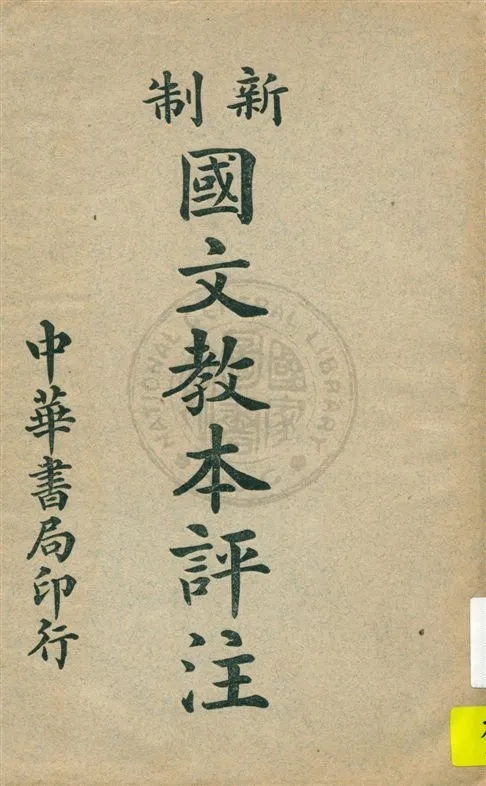 新制
國文教本評注
中華書局印行
NATIONAL CENTRAL LIBRARY